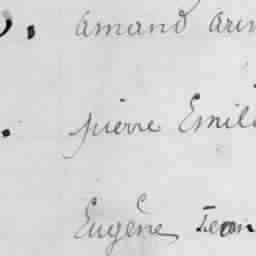 amand
pierre Emil
Eugène Jean